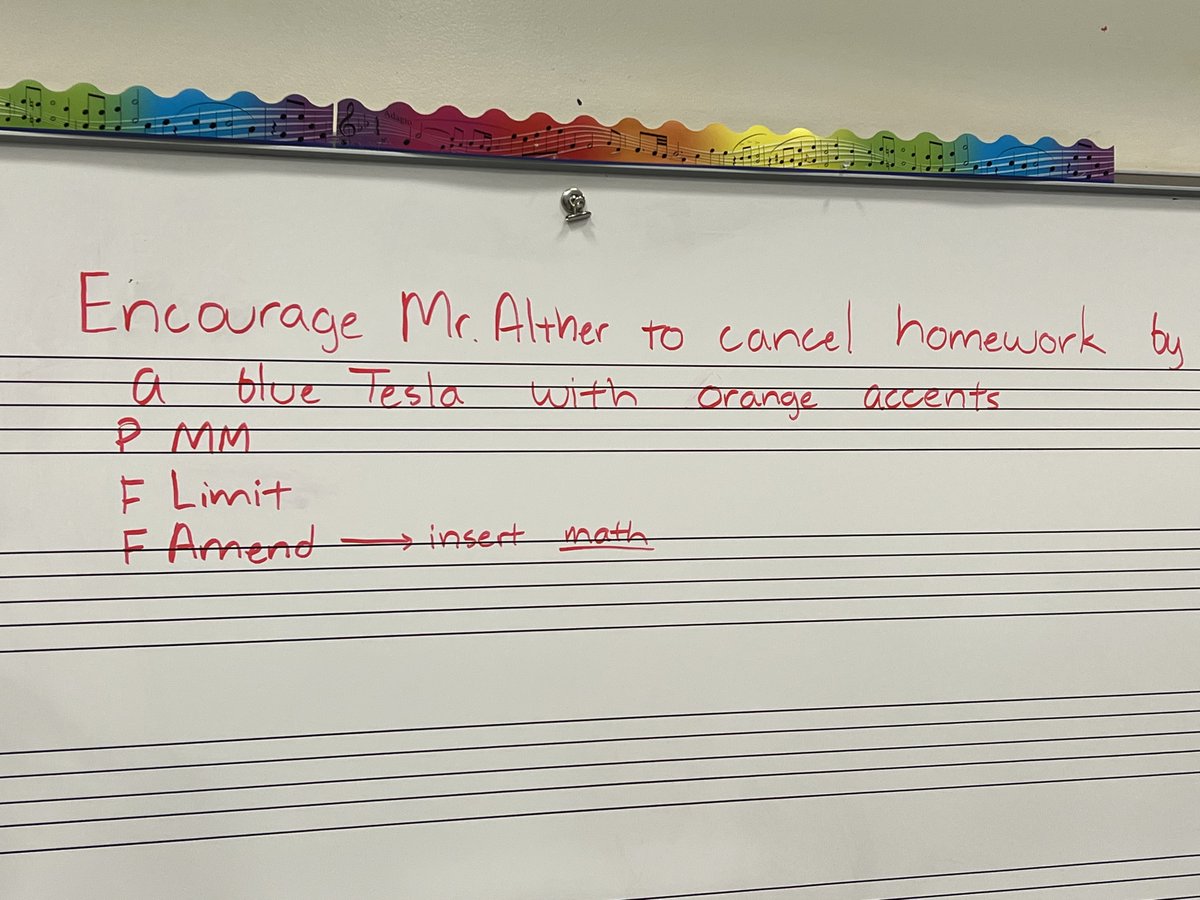 Adagio
Encourage Mr. Alther to cancel homework by
a blue Tesla with orange accents
P MM
F Limit
F Amend → insert math